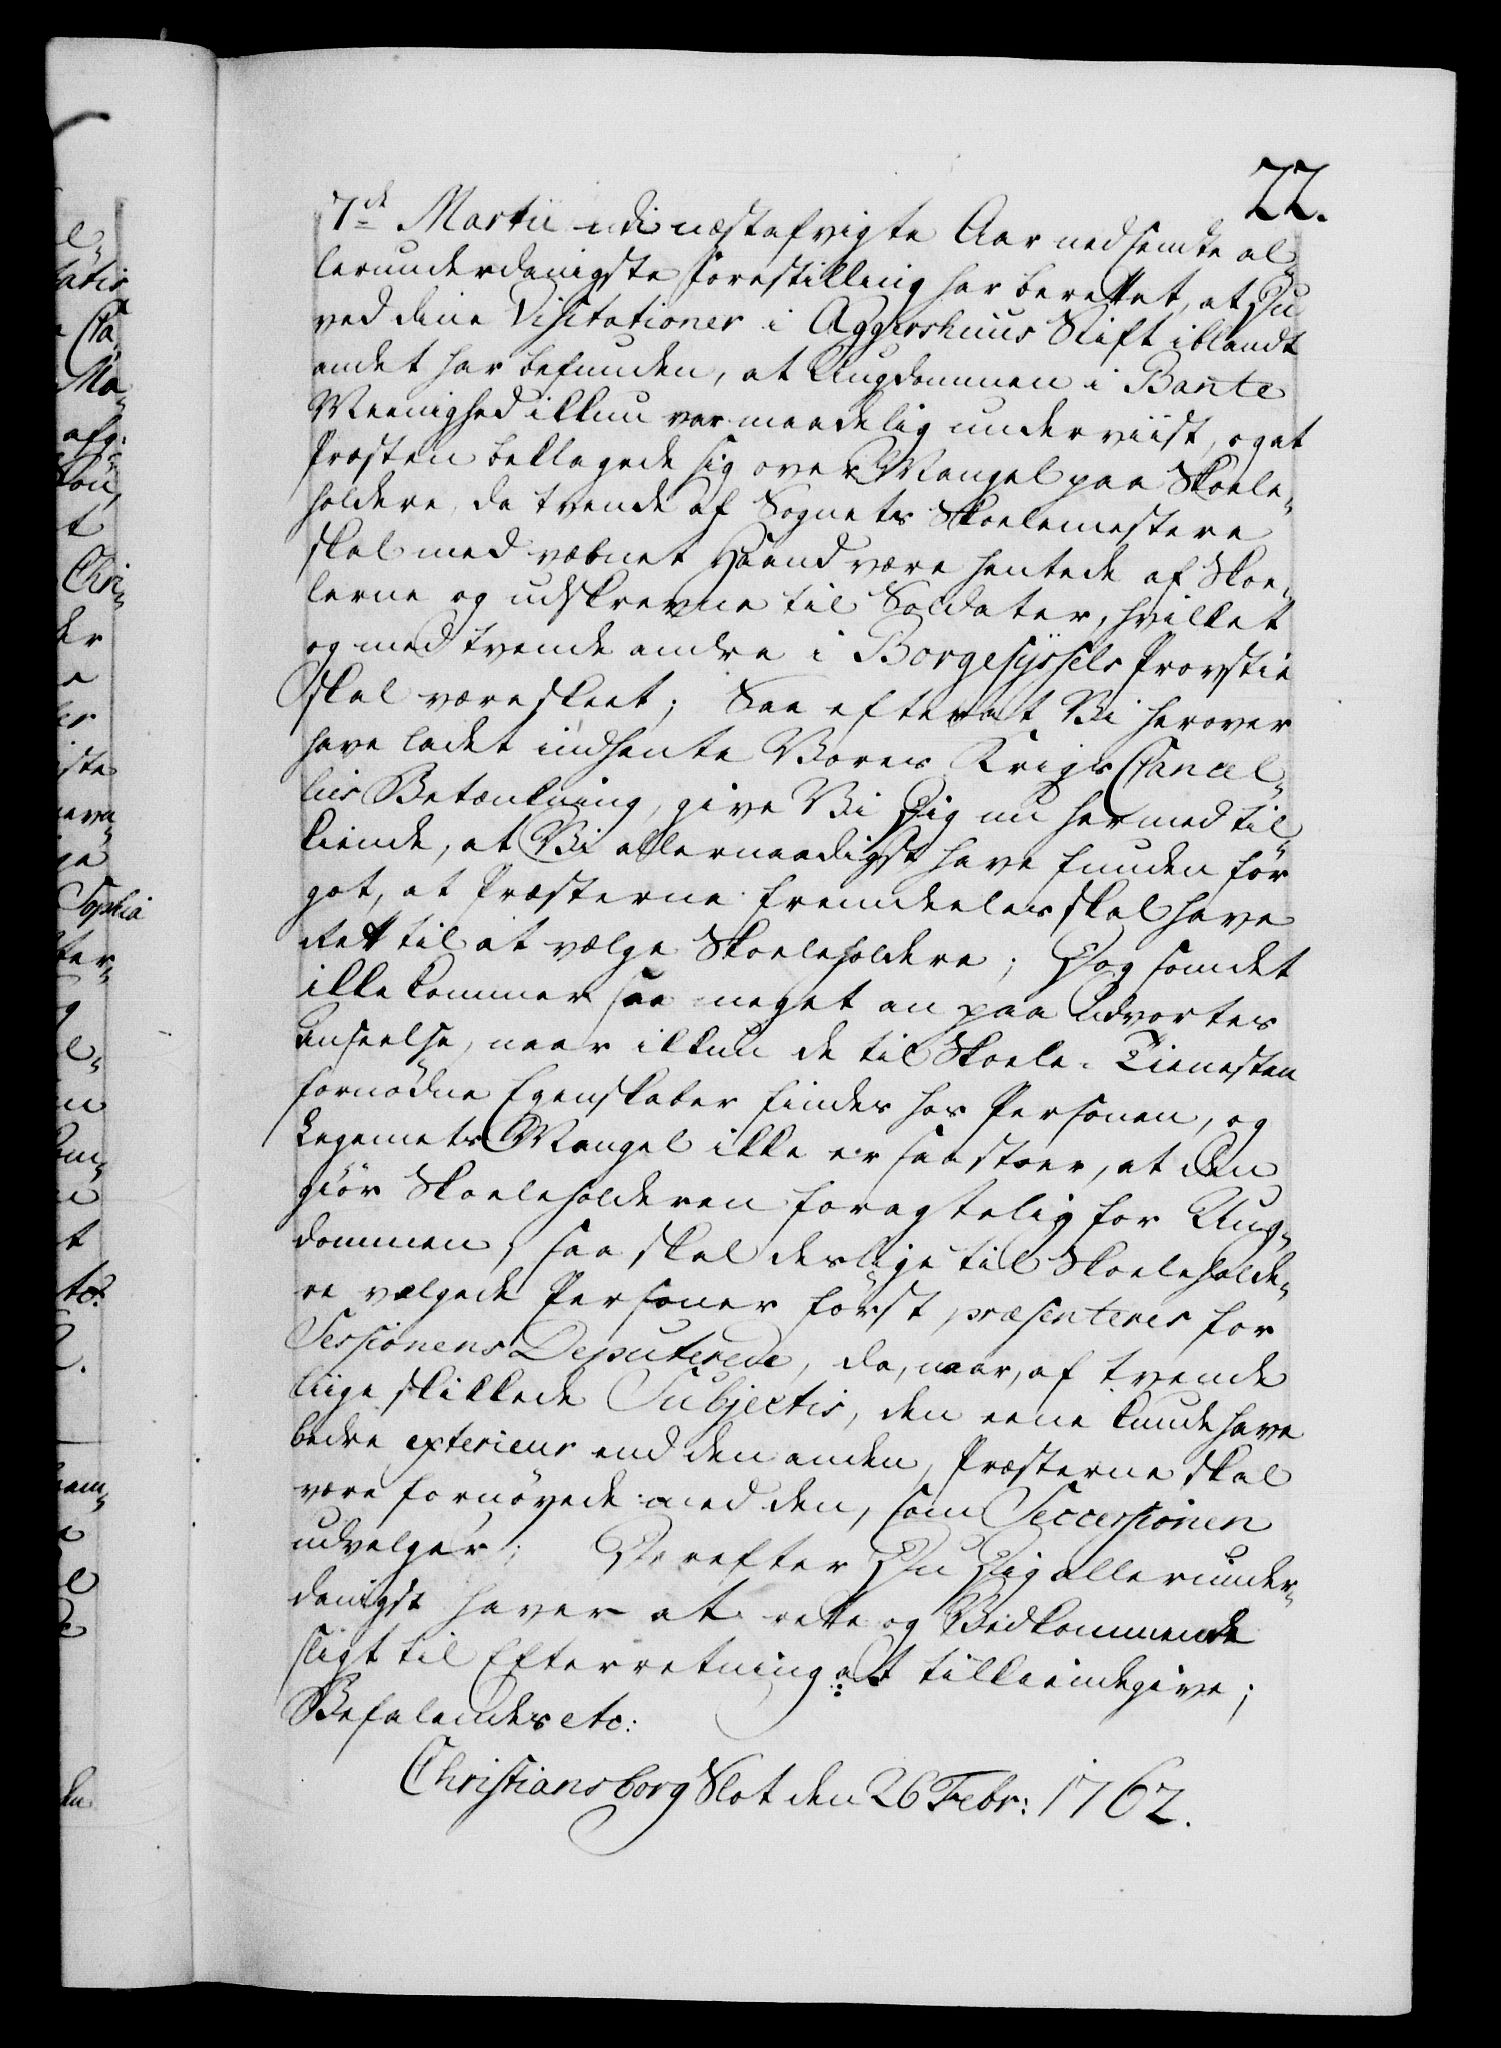 22.
7de Martii udi næstafvigte Aar nedsendte al¬
lerunderdanigste Forestilling har berettet, at Du
ved dine Visitationer i Aggershuus Stift iblandt
andet har befunden, at Ungdommen i
Meenighed ikkun var maadelig underviist, og at
Præsten beklagede sig over Mangel paa Skole¬
holdere, da tvende af Sognets Skolemestere
skal med væbnet Haand være hentede af Skoe¬
lerne og udskrevne til Soldater, hvilket
og med tvende andre i Borgesyssels Provstie
skal være skeet; Saa efterat Vi herover
have ladet indhente Vores Krigs Cancel¬
lies Betænkning, give Vi Dig nu hermed til¬
kiende, at Vi allernaadigst have funden for
got, at Præsterne fremdeeles skal have
Rett til at vælge Skoleholdere; Dog som det
ikke kommer saa meget an paa Udvortes
Anseelse, naar ikkun de til Skole-Tienesten
fornødne Egenskaber findes hos Personen, og
Legemets Mangel ikke er saa stoer, at den
giør Skoleholderen foragtelig for Ung¬
dommen, saa skal deslige til Skoleholde¬
re valgede Personer først præsenteres for
Sessionens Deputerede, da, naar, af tvende
liige skikkede Subjectis, den eene kunde have
bedre exterieur end den anden, Præsterne skal
være fornøyede med den, som Seccessionen
udvælger; Derefter Du Dig allerunder¬
danigst haver at rette og Vedkommende
sligt til Efterretning at tilkiendegive;
Befalendes etc:
Christiansborg Slot den 26 Febr: 1762.